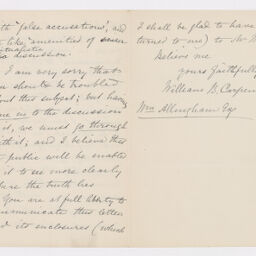 with "false accusations", and
the like, amenities of
discussion.
I am very sorry that
you should be troubled
about this subject; but having
come us to the discussion
of it, we must go through
with it; and I believe that
the public will be enabled
to see more clearly
where the truth lies
You are at full liberty to
communicate this letter
and its enclosures (which
I shall be glad to have
returned to me) to Mr
Believe me
yours faithfully
William B. Carpen
Wm Allingham Esq